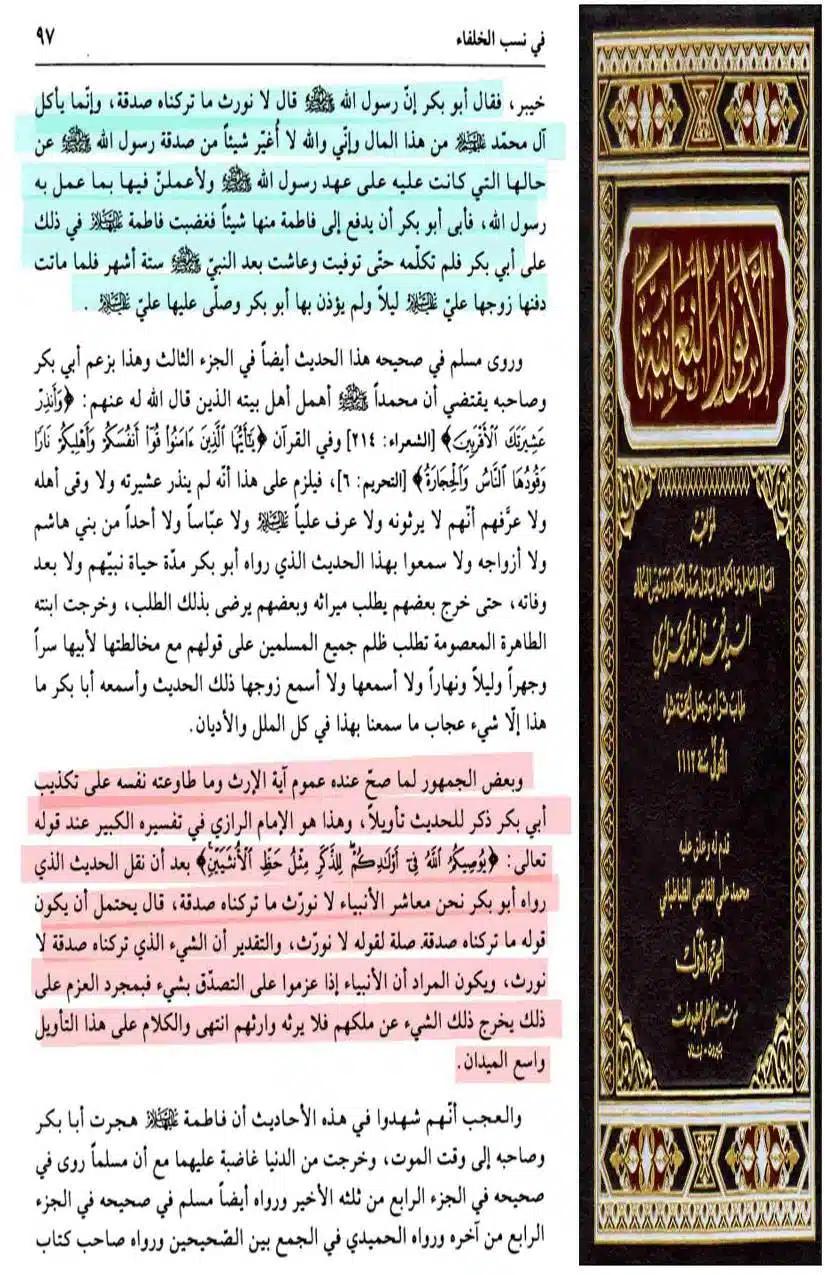 في نسب الخلفاء
٩٧
خيبر، فقال أبو بكر إنّ رسول الله ﷺ قال لا نورث ما تركناه صدقة، وإنّما يأكل
آل محمّد عليه السلام من هذا المال وإنّي والله لا أُغيّر شيئاً من صدقة رسول الله ﷺ عن
حالها التي كانت عليه على عهد رسول الله ﷺ ولأعملنّ فيها بما عمل به
رسول الله، فأبى أبو بكر أن يدفع إلى فاطمة منها شيئاً فغضبت فاطمة عليها السلام في ذلك
على أبي بكر فلم تكلّمه حتّى توفيت وعاشت بعد النبيّ ﷺ ستة أشهر فلما ماتت
دفنها زوجها عليّ عليه السلام ليلاً ولم يؤذن بها أبو بكر وصلّى عليها عليّ عليه السلام .
وروى مسلم في صحيحه هذا الحديث أيضاً في الجزء الثالث وهذا بزعم أبي بكر
وصاحبه يقتضي أن محمداً ﷺ أهمل أهل بيته الذين قال الله له عنهم: ﴿وَأَنذِرْ
عَشِيرَتَكَ ٱلْأَقْرَبِينَ﴾ [الشعراء: ٢١٤] وفي القرآن ﴿يَٰٓأَيُّهَا ٱلَّذِينَ ءَامَنُوا۟ قُوٓا۟ أَنفُسَكُمْ وَأَهْلِيكُمْ نَارًا
وَقُودُهَا ٱلنَّاسُ وَٱلْحِجَارَةُ﴾ [التحريم: ٦]، فيلزم على هذا أنّه لم ينذر عشيرته ولا وقى أهله
ولا عرَّفهم أنّهم لا يرثونه ولا عرف علياً عليه السلام ولا عبّاساً ولا أحداً من بني هاشم
ولا أزواجه ولا سمعوا بهذا الحديث الذي رواه أبو بكر مدّة حياة نبيّهم ولا بعد
وفاته، حتى خرج بعضهم يطلب ميراثه وبعضهم يرضى بذلك الطلب، وخرجت ابنته
الطاهرة المعصومة تطلب ظلم جميع المسلمين على قولهم مع مخالطتها لأبيها سراً
وجهراً وليلاً ونهاراً ولا أسمعها ولا أسمع زوجها ذلك الحديث وأسمعه أبا بكر ما
هذا إلّا شيء عجاب ما سمعنا بهذا في كل الملل والأديان.
وبعض الجمهور لما صحّ عنده عموم آية الإرث وما طاوعته نفسه على تكذيب
أبي بكر ذكر للحديث تأويلاً، وهذا هو الإمام الرازي في تفسيره الكبير عند قوله
تعالى: ﴿يُوصِيكُمُ ٱللَّهُ فِىٓ أَوْلَٰدِكُمْ لِلذَّكَرِ مِثْلُ حَظِّ ٱلْأُنثَيَيْنِ﴾ بعد أن نقل الحديث الذي
رواه أبو بكر نحن معاشر الأنبياء لا نورّث ما تركناه صدقة، قال يحتمل أن يكون
قوله ما تركناه صدقة. صلة لقوله لا نورّث، والتقدير أن الشيء الذي تركناه صدقة لا
نورث، ويكون المراد أن الأنبياء إذا عزموا على التصدّق بشيء فبمجرد العزم على
ذلك يخرج ذلك الشيء عن ملكهم فلا يرثه وارثهم انتهى والكلام على هذا التأويل
واسع الميدان.
والعجب أنّهم شهدوا في هذه الأحاديث أن فاطمة عليها السلام هجرت أبا بكر
وصاحبه إلى وقت الموت، وخرجت من الدنيا غاضبة عليهما مع أن مسلماً روى في
صحيحه في الجزء الرابع من ثلثه الأخير ورواه أيضاً مسلم في صحيحه في الجزء
الرابع من آخره ورواه الحميدي في الجمع بين الصّحيحين ورواه صاحب كتاب
الأنوار النعمانية
السيد نعمة الله الجزائري
المتوفى سنة ١١١٢
قدم له وعلق عليه
محمد علي القاضي الطباطبائي
الجزء الأول